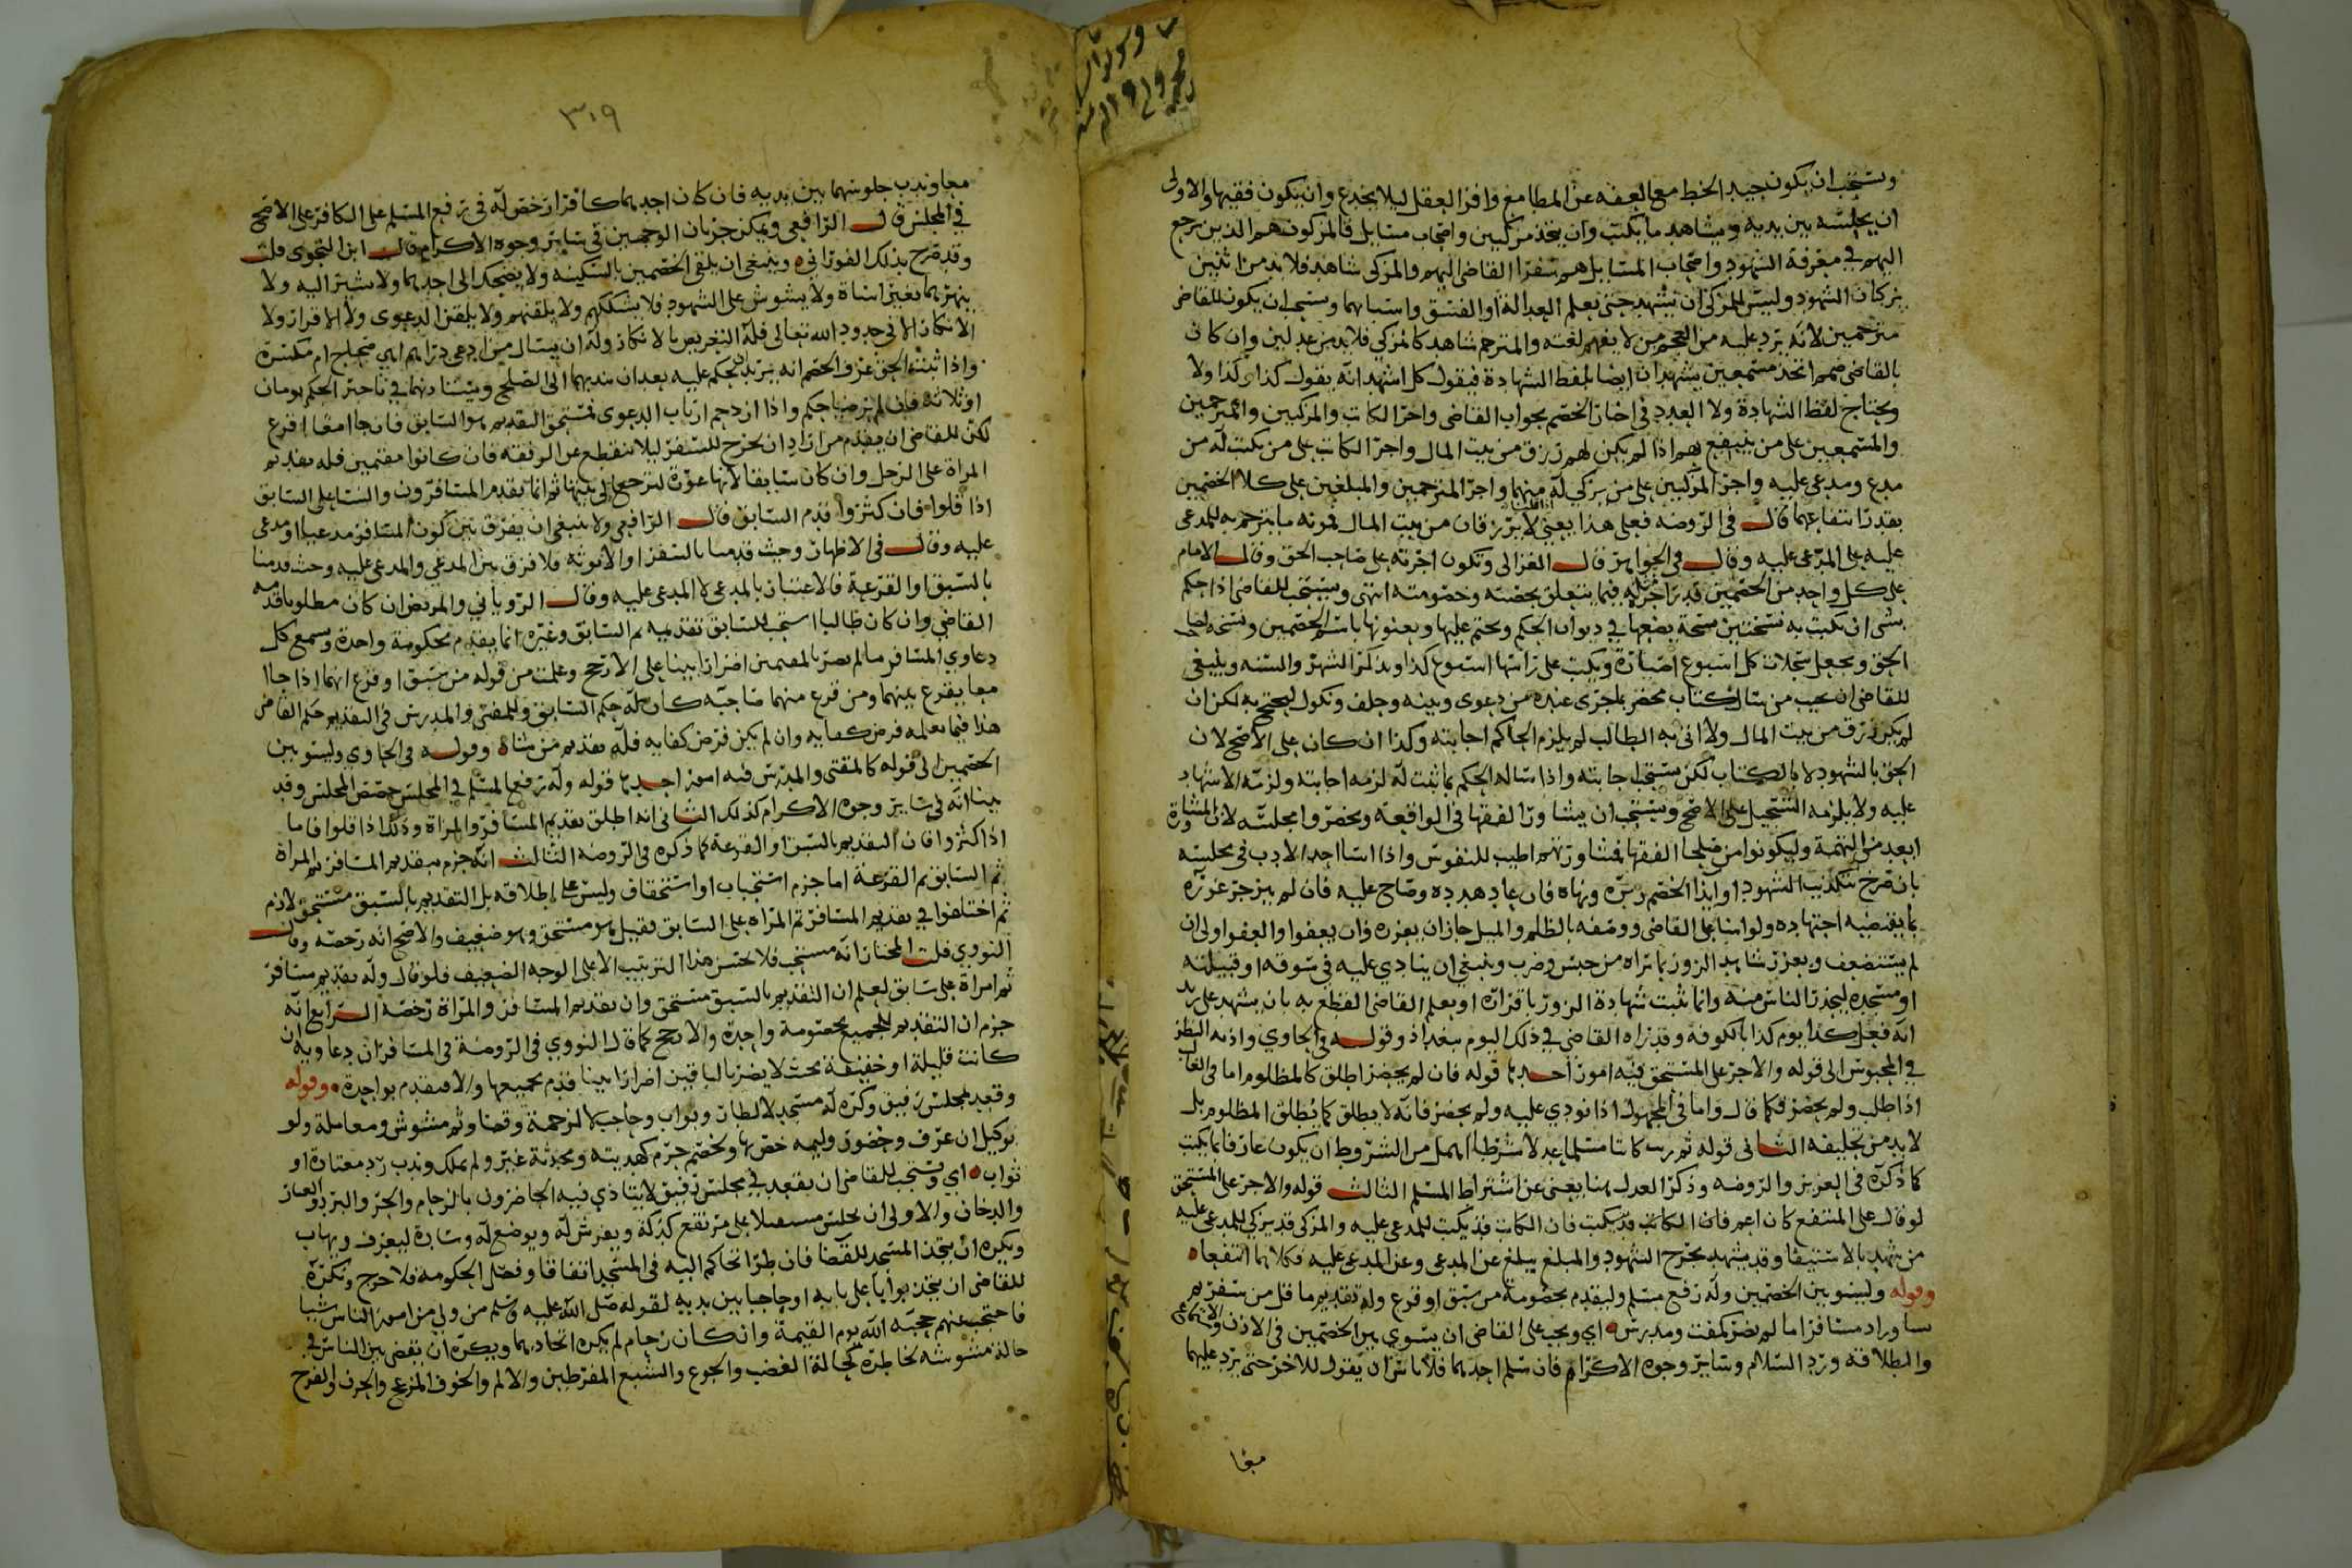 ويستحب ان يكون جيد الخط مع العفه عن المطامع وافر العقل ليلا يخدع وان يكون فقيها والاولى
ان يجلسه بين يديه ويشاهد ما يكتب وان يتخذ مزكيين واصحاب مسايل فالمزكون هم الذين يرجع
اليهم في معرفة الشهود واصحاب المسايل هم سفرا القاضي اليهم والمزكي شاهد فلا بد من اثنين
يزكان الشهود وليس للمزكي ان يشهد حتى يعلم العدالة او الفسق واسبابهما ويستحب ان يكون للقاضي
مترجمين لانه يرد عليه من العجم من لا يفهم لغته والمترجم شاهد كالمزكي فلا بد من عدلين وان كان
بالقاضي صمم اتخذ مستمعين يشهدان ايضا بلفظ الشهادة فيقول كل اشهد انه يقول كذا وكذا ولا
يحتاج لفظ الشهادة ولا العدد في اخبار الخصم بجواب القاضي واجر الكاتب والمزكيين والمترجمين
والمستمعين على من ينتفع بهم اذا لم يكن لهم رزق من بيت المال واجر الكاتب على من يكتب له من
مدع ومدعى عليه واجر المزكيين على من يزكي له منهما واجر المترجمين والمبلغين على كلا الخصمين
بقدر انتفاعهما قال في الروضه فعلى هذا يعني لا يرزقان من بيت المال فمونه ما يترجم به للمدعي
عليه على المدعى عليه وقال في الجواهر قال الغزالي وتكون اجرته على صاحب الحق وقال الامام
على كل واحد من الخصمين قدر اجر مثله فيما يتعلق بحصته وخصومته انتهى ويستحب للقاضي اذا حكم
بشي ان يكتب به نسختين نسخة يضعها في ديوان الحكم ويختم عليها ويعنونها باسم الخصمين ونسخه لصاحب
الحق ويجعل سجلات كل اسبوع اضبارة ويكتب على راسها اسبوع كذا ويذكر الشهر والسنه وينبغي
للقاضي ان يجيب من سال كتاب محضر بما جرى عنده من دعوى وبينه وحلف ونكول ليحتج به لكن ان
لم يكن رزق من بيت المال ولا اتى به الطالب لم يلزم الحاكم اجابته وكذا ان كان على الاصح لان
الحق بالشهود لا بالكتاب لكن يستحب اجابته واذا ساله الحكم بما ثبت له لزمه اجابته ولزمه الاشهاد
عليه ولا يلزمه التسجيل على الاصح ويستحب ان يشاور الفقها في الواقعه ويحضروا مجلسه لان المشاورة
ابعد من التهمة وليكونوا من صلحا الفقها فمشاورتهم اطيب للنفوس واذا اسا احد الادب في مجلسه
بان صرح بتكذيب الشهود او ايذا الخصم زبره ونهاه فان عاد هدده وصاح عليه فان لم ينزجر عزره
بما يقتضيه اجتهاده ولو اسا على القاضي ووصفه بالظلم والميل جاز ان يعزره وان يعفوا والعفو اولى ان
لم يستضعف ويعزر شاهد الزور بما يراه من حبس وضرب وينبغي ان ينادي عليه في سوقه او قبيلته
او مسجده ليحذر الناس منه وانما تثبت شهادة الزور باقراره او بعلم القاضي القطع به بان يشهد على زيد
انه فعل كذا يوم كذا بالكوفه وقد راه القاضي في ذلك اليوم ببغداذ وقوله في الحاوي واذنه النظر
في المحبوس الى قوله والاجر على المستحق فيه امور احدها قوله فان لم يحضر اطلق كالمظلوم اما في الغايب
اذا طلب ولم يحضر فكما قال واما في المجهول اذا نودي عليه ولم يحضر فانه لا يطلق كما يطلق المظلوم بل
لا بد من تحليفه الثاني قوله ثم رتب كاتبا مسلما عدلا شرطا اهمل من الشروط ان يكون عارفا بما يكتب
كما ذكره في العزيز والروضه وذكر العدل هنا يغني عن اشتراط المسلم الثالث قوله والاجر على المستحق
لو قال على المنتفع كان اعم فان الكاتب قد يكتب فان الكاتب قد يكتب للمدعى عليه والمزكي قد يزكي للمدعى عليه
من يشهد بالاستيفا وقد يشهد بجرح الشهود والمبلغ يبلغ عن المدعي وعن المدعى عليه فكلاهما انتفعا
وقوله وليسو بين الخصمين وله رفع مسلم وليقدم بخصومة من سبق او قرع وله تقديم ما قل من سفر ثم
نسا وراد مسافرا ما لم يضر كمفت ومدرس اي ويجب على القاضي ان يسوي بين الخصمين في الاذن والاستماع
والطلاقه ورد السلام وساير وجوه الاكرام فان سلم احدهما فلا باس ان يقول للاخر حتى يرد عليهما
معا
٣٠٩
معا وندب جلوسهما بين يديه فان كان احدهما كافرا رخص له في رفع المسلم على الكافر على الاصح
في المجلس قال الرافعي ويمكن جريان الوجهين في ساير وجوه الاكرام قال ابن النحوي قلت
وقد صرح بذلك الفوراني وينبغي ان يلقى الخصمين بالسكينه ولا يضحك الى احدهما ولا يشير اليه ولا
ينهرهما بغير اساة ولا يشوش على الشهود فلا يشككهم ولا يلقنهم ولا يلقن الدعوى ولا الاقرار ولا
الانكار الا في حدود الله تعالى فله التعريض بالانكار وله ان يسال من ادعى دراهم اهي صحاح ام مكسرة
واذا ثبت الحق عرف الخصم انه يريد ان يحكم عليه بعد ان يندبهما الى الصلح ويستاذنهما في تاخير الحكم يومان
او ثلاثه فان لم يرضيا حكم واذا ازدحم ارباب الدعوى فمستحق التقديم هو السابق فان جاا معا اقرع
لكن للقاضي ان يقدم من اراد ان يخرج للسفر ليلا ينقطع عن الرفقه فان كانوا مقيمين فله تقديم
المراة على الرجل وان كان سابقا لانها عورة لترجع الى بيتها ثم انما يقدم المسافرون والنسا على السابق
اذا قلوا فان كثروا قدم السابق قال الرافعي ولا ينبغي ان يفرق بين كون المسافر مدعيا او مدعى
عليه وقال في الاظهار وحيث قدمنا بالسفر او الانوثه فلا فرق بين المدعي والمدعى عليه وحيث قدمنا
بالسبق او القرعة فالاعتبار بالمدعي لا المدعى عليه وقال الروياني والمريض ان كان مطلوبا قدمه
القاضي وان كان طالبا استحب للسابق تقديمه ثم السابق وغيره انما يقدم بحكومة واحدة وسمع كل
دعاوي المسافر ما لم يضر بالمقيمين اضرارا بينا على الارجح وعلمت من قوله من سبق او قرع انهما اذا جاا
معا يقرع بينهما ومن قرع منهما صاحبه كان له حكم السابق وللمفتي والمدرس في التقديم حكم القاضي
هذا فيما تعلمه فرض كفايه وان لم يكن فرض كفايه فله تقديم من شاه وقوله في الحاوي وليسو بين
الخصمين الى قوله كالمفتي والمدرس فيه امور احدها قوله وله رفع المسلم في المجلس خصص المجلس وقد
بينا انه في ساير وجوه الاكرام كذلك الثاني انه اطلق تقديم المسافر والمراة وذلك اذا قلوا فاما
اذا كثروا فان التقديم بالسبق او القرعة كما ذكره في الروضه الثالث انه جزم بتقديم المسافر ثم المراة
ثم السابق ثم القرعة اما جزم استحباب او استحقاق وليس على اطلاقه بل التقديم بالسبق مستحق لازم
ثم اختلفوا في تقديم المسافر ثم المراه على السابق فقيل هو مستحق وهو ضعيف والاصح انه رخصه وقال
النووي قلت المختار انه مستحب فلا يحسن هذا الترتيب الا على الوجه الضعيف فلو قال وله تقديم مسافر
ثم امراة على سابق لعلم ان التقديم بالسبق مستحق وان تقديم المسافر والمراة رخصة الرابع انه
جزم ان التقديم للجميع بخصومة واحدة والارجح كما قال النووي في الروضة في المسافر ان دعاويه ان
كانت قليلة او خفيفة بحيث لا يضر بالباقين اضرارا بينا قدم بجميعها والا فيقدم بواحدة وقوله
وقعد بمجلس رفيق وكره له مسجد لا لطار وبواب وحاجب لا لزحمة وقضا وثم مشوش ومعاملة ولو
بوكيل ان عرف وحضور وليمه خص بها ولخصم حرم كهديته ومحدثة غير ولم يملك وندب رد معتادة او
ثواب اي ويستحب للقاضي ان يقعد في مجلس رفيق لا يتاذي فيه الحاضرون بالزحام والحر والبرد والغبار
والدخان والاولى ان يجلس مستقبلا على مرتفع كدكة ويفرش له ويوضع له وسادة ليعرف ويهاب
ويكره ان يتخذ المسجد للقضا فان طرا تحاكم اليه في المسجد اتفاقا وفصل الحكومه فلا حرج ويكره
للقاضي ان يتخذ بوابا على بابه او حاجبا بين يديه لقوله صلى الله عليه وسلم من ولي من امور الناس شيا
فاحتجب عنهم حجبه الله يوم القيمة وان كان زحام لم يكره اتخاذهما ويكره ان يقضي بين الناس في
حالة مشوشه لخاطره كحالة الغضب والجوع والشبع المفرطين والالم والخوف المزعج والحزن والفرح